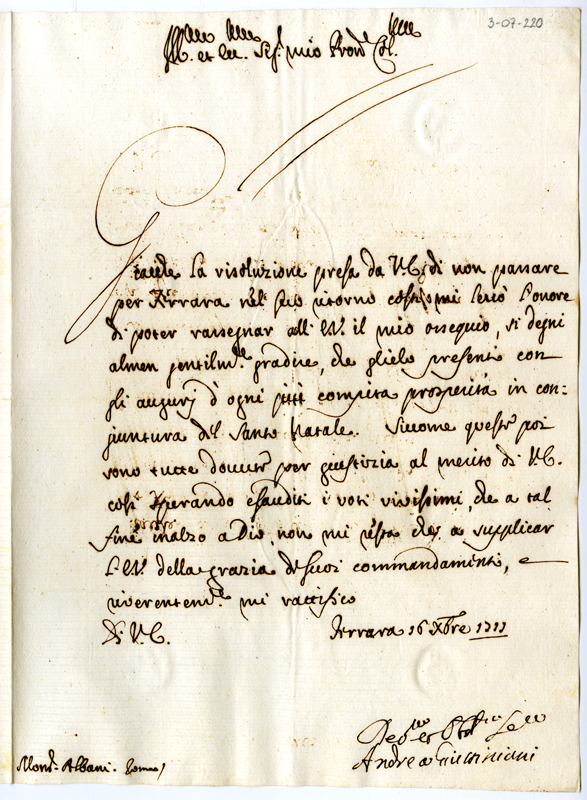 3-07-220
Ill.mo et Sig.r mio Pron.e Col.mo
Giacche la risoluzione presa da V.E. di non passare
per Ferrara nel suo ritorno costì mi levò l'onore
di poter rassegnar all' E.V. il mio ossequio, si degni
almen gentilm.te gradire, che glielo presenti con
gli augurj d'ogni più compita prosperità in con-
juntura del Santo Natale. Siccome queste poi
sono tutte dovute per giustizia al merito di V.E.
così sperando esauditi i voti vivissimi, che a tal
fine inalzo a Dio, non mi resta che a supplicar
l'E.V. della grazia de suoi commandamenti, e
riverentem.te mi rattifico
Di V.E. Ferrara 16 Xbre 1711
Dev.mo et Obl.mo Se.re
Andrea Giustiniani
Mons.r Albani. Roma